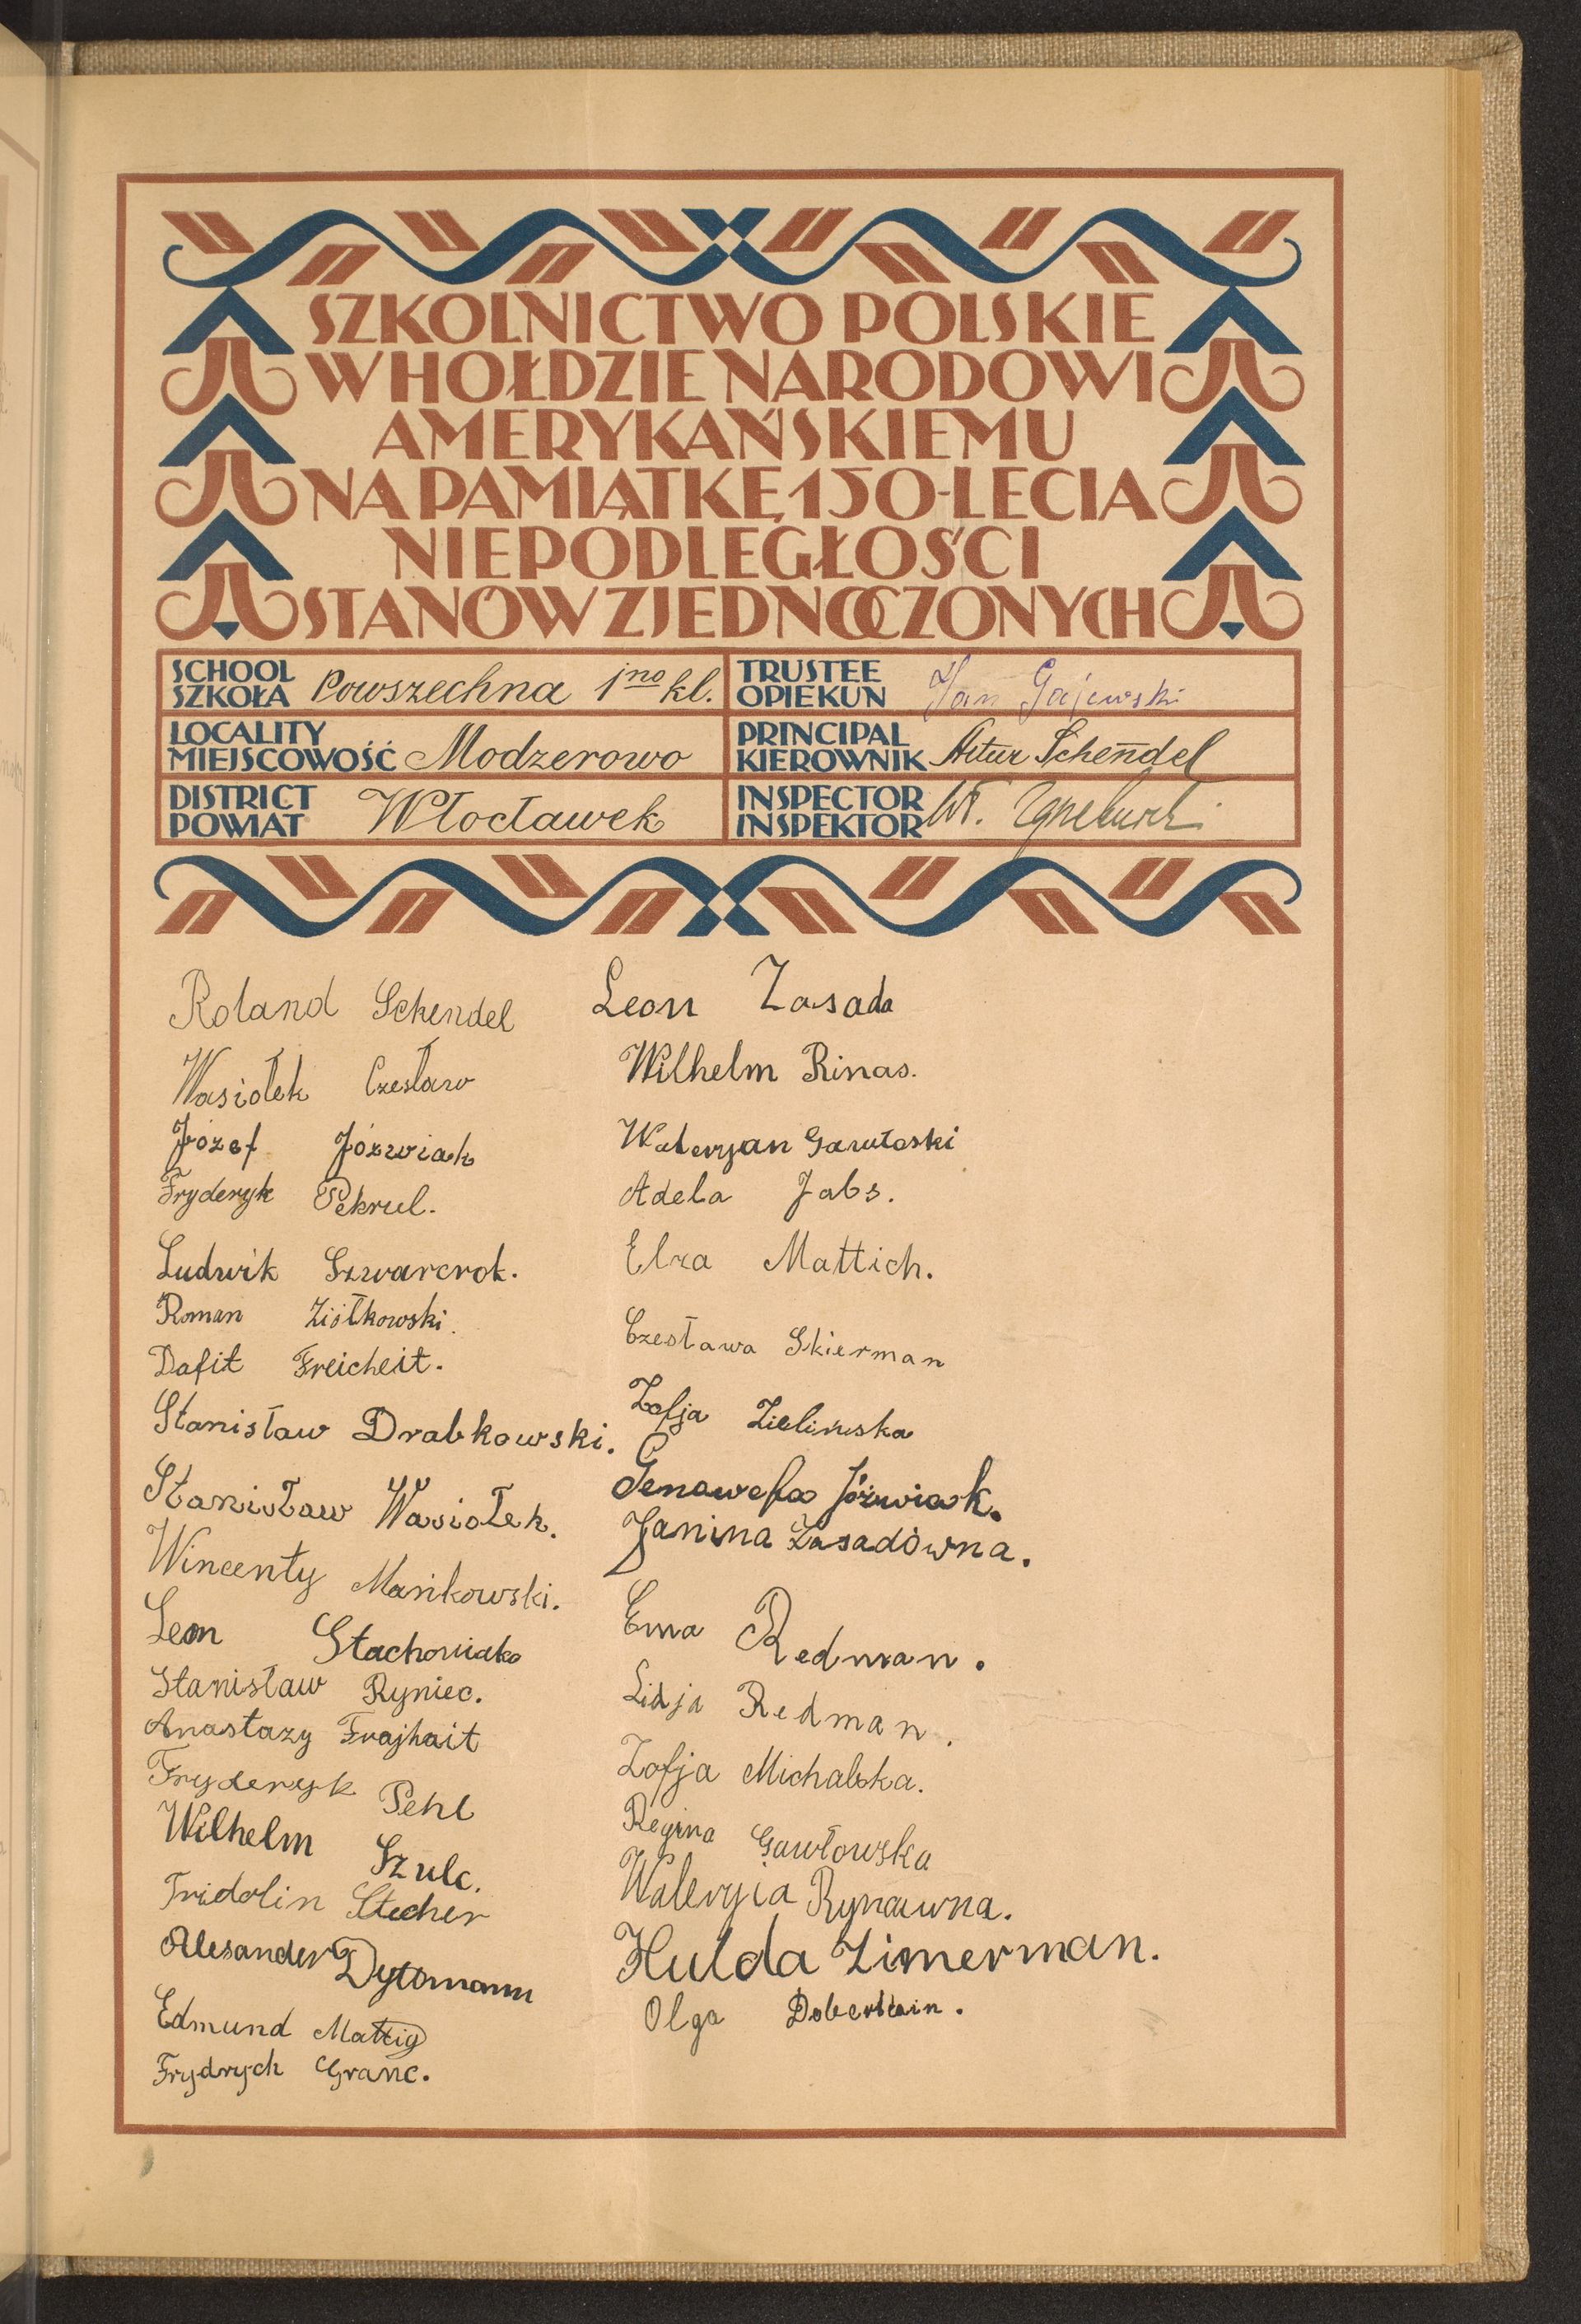 SZKOLNICTWO POLSKIE
W HOŁDZIE NARODOWI
AMERYKAŃSKIEMU
NA PAMIĄTKĘ 150-LECIA
NIEPODLEGŁOŚCI
STANÓW ZJEDNOCZONYCH
SCHOOL
SZKOŁA Powszechna 1no kl.
TRUSTEE
OPIEKUN Jan Gajewski
LOCALITY
MIEJSCOWOŚĆ Modzerowo
PRINCIPAL
KIEROWNIK Artur Schendel
DISTRICT
POWIAT Włocławek
INSPECTOR
INSPEKTOR Wł.
Roland Schendel
Wasiołek Czesław
Józef Józwiak
Fryderyk Pekrul.
Ludwik Szwarcrok.
Roman Ziółkowski.
Dafit Freicheit.
Stanisław Drabkowski.
Stanisław Wasiołek.
Wincenty Mańkowski.
Leon Stachowiak
Stanisław Ryniec.
Anastazy Frajhait
Fryderyk Pehl
Wilhelm Szulc.
Fridolin Stecher
Alesander Dytomann
Edmund Mattig
Frydrych Granc.
Leon Zasada
Wilhelm Rinas.
Waleryan
Adela Jabs.
Elza Mattich.
Czesława Skierman
Zofja Zielińska
Genowefa Józwiak.
Janina Zasadówna.
Ema Redman.
Lidja Redman.
Zofja Michalska.
Regina Gawłowska
Waleryia
Hulda Zimerman.
Olga